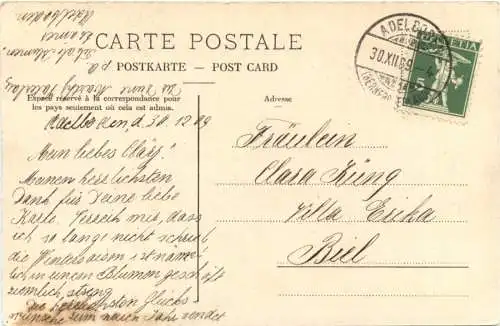 CARTE POSTALE
POSTKARTE — POST CARD
Espace réservé à la correspondance pour
les pays seulement où cela est admis.
Adresse
ADELBODEN
30.XII.09
HELVETIA
Adelboden, d. 30.12.09
Mein liebes Cläry!
Meinen herzlichsten
Dank für Deine liebe
Karte. Verzeih mir, dass
ich so lange nicht schrieb
die Wintersaison ist nament-
lich in einem Blumengeschäft
ziemlich streng
die herzlichsten Glücks-
wünsche zum neuen Jahr sendet
Fräulein
Clara Küng
Villa Erika
Biel